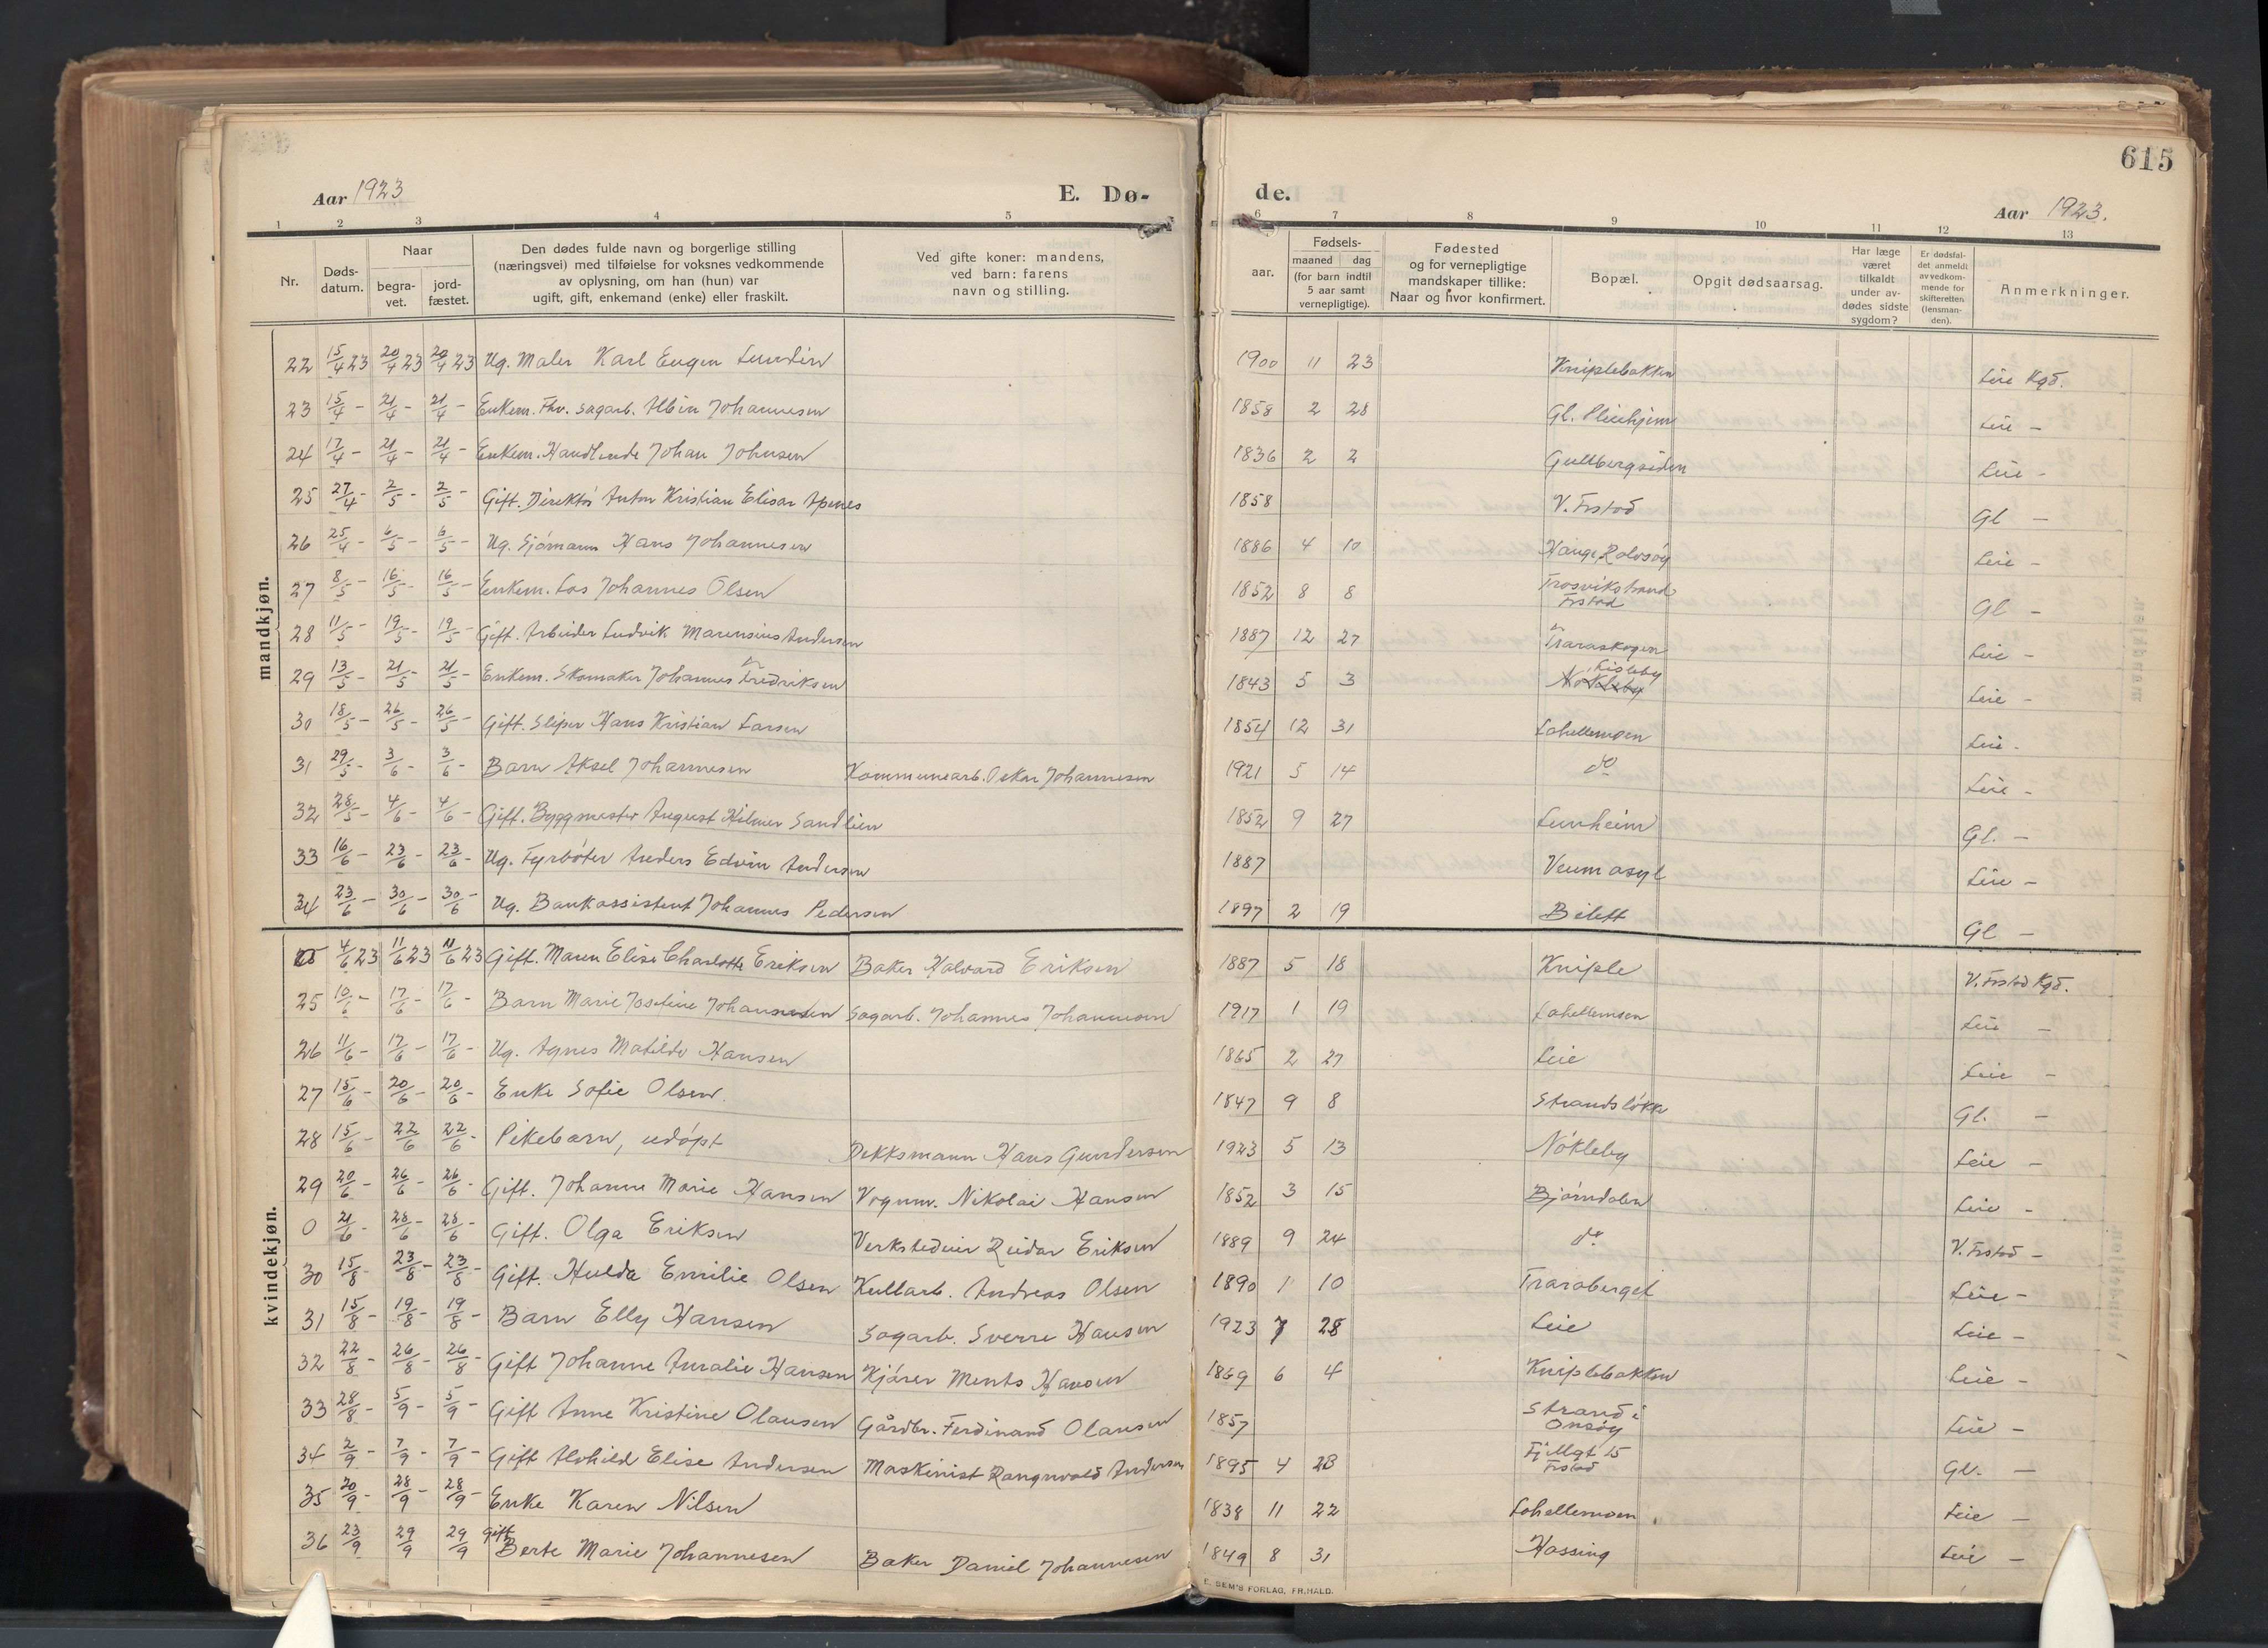 615
Aar 1923
E. Dø-
de.
Aar 1923.
1 2 3 4 5 6 7 8 9 10 11 12 13
Nr.
Døds-
datum.
Naar
begra-
vet.
jord-
fæstet.
Den dødes fulde navn og borgerlige stilling
(næringsvei) med tilføielse for voksnes vedkommende
av oplysning, om han (hun) var
ugift, gift, enkemand (enke) eller fraskilt.
Ved gifte koner: mandens,
ved barn: farens
navn og stilling.
Fødsels-
aar.
maaned dag
(for barn indtil
5 aar samt
vernepligtige).
Fødested
og for vernepligtige
mandskaper tillike:
Naar og hvor konfirmert.
Bopæl.
Opgit dødsaarsag.
Har læge
været
tilkaldt
under av-
dødes sidste
sygdom?
Er dødsfal-
det anmeldt
av vedkom-
mende for
skifteretten
(lensman-
den).
Anmerkninger.
mandkjøn.
22 15/4 23 20/4 23 20/4 23 Ug. Maler Karl Eugen Lundin 1900 11 23 Kniplebakken Leie Kgd.
23 15/4 - 21/4 - 21/4 - Enkem. Fhv. sagarb. Albin Johannesen 1858 2 28 Gl. Pleiehjem Leie -
24 17/4 - 21/4 - 21/4 - Enkem. Handlende Johan Johnsen 1836 2 2 Gullbergsiden Leie -
25 27/4 - 2/5 - 2/5 - Gift. Direktør Anton Kristian Elisar Apenes 1858 V. Frstad Gl -
26 25/4 - 6/5 - 6/5 - Ug. Sjømann Hans Johannesen 1886 4 10 Hauge, Rolvsøy Leie -
27 8/5 - 16/5 - 16/5 - Enkem. Los Johannes Olsen 1852 8 8 Trosvikstrand Frstad Gl -
28 11/5 - 19/5 - 19/5 - Gift. Arbeider Ludvik Marensius Andersen 1887 12 27 Traraskogen Leie -
29 13/5 - 21/5 - 21/5 - Enkem. Skomaker Johannes Fredriksen 1843 5 3 Nøkleby Lisleby Leie -
30 18/5 - 26/5 - 26/5 - Gift. Sliper Hans Kristian Larsen 1854 12 31 Lahellemoen Leie -
31 29/5 - 3/6 - 3/6 - Barn Aksel Johannesen Kommunearb. Oskar Johannesen 1921 5 14 do Leie -
32 28/5 - 4/6 - 4/6 - Gift. Byggmester August Hilmer Sandlien 1852 9 27 Lunheim Gl. -
33 16/6 - 23/6 - 23/6 - Ug. Fyrbøter Anders Edvin Andersen 1887 Veum asyl Leie -
34 23/6 - 30/6 - 30/6 - Ug. Bankassistent Johannes Pedersen 1897 2 19 Bilett Gl -
kvindekjøn.
4/6 23 11/6 23 11/6 23 Gift. Maren Elise Charlotte Eriksen Baker Halvard Eriksen 1887 5 18 Kniple V. Frstad Kgd.
25 10/6 - 17/6 - 17/6 - Barn Marie Josefine Johannesen Sagarb. Johannes Johannesen 1917 1 19 Lahellemoen Leie -
26 11/6 - 17/6 - 17/6 - Ug. Agnes Matilde Hansen 1865 2 27 Leie Leie -
27 15/6 - 20/6 - 20/6 - Enke Sofie Olsen. 1847 9 8 Strandsløkka Gl. -
28 15/6 - 22/6 22/6 - Pikebarn, udøpt Dekksmann Hans Gundersen 1923 5 13 Nøkleby Leie -
29 20/6 - 26/6 - 26/6 - Gift. Johanne Marie Hansen Vognm. Nikolai Hansen 1852 3 15 Bjørndalen Leie -
0 21/6 - 28/6 - 28/6 - Gift. Olga Eriksen Verkstedeier Reidar Eriksen 1889 9 24 do V. Frstad -
30 15/8 - 23/8 - 23/8 - Gift. Hulda Emilie Olsen Kullarb. Andreas Olsen 1890 1 10 Traraberget Leie -
31 15/8 - 19/8 - 19/8 - Barn Elly Hansen Sagarb. Sverre Hansen 1923 7 28 Leie Leie -
32 22/8 - 26/8 - 26/8 - Gift Johanne Amalie Hansen Kjører Ments Hansen 1869 6 4 Kniplebakken Leie -
33 28/8 - 5/9 - 5/9 - Gift Anne Kristine Olausen Gårdbr. Ferdinand Olausen 1857 Strand i Onsøy Leie -
34 2/9 - 7/9 - 7/9 - Gift Alvhild Elise Andersen Maskinist Rangnvald Andersen 1895 4 23 Fjellgt 15 Frstad Gl. -
35 20/9 - 28/9 - 28/9 - Enke Karen Nilsen 1838 11 22 Lahellemoen Leie -
36 23/9 29/9 29/9 gift Berte Marie Johannesen Baker Daniel Johannesen 1849 8 31 Hassing Leie -
E. SEM'S FORLAG, FR.HALD.